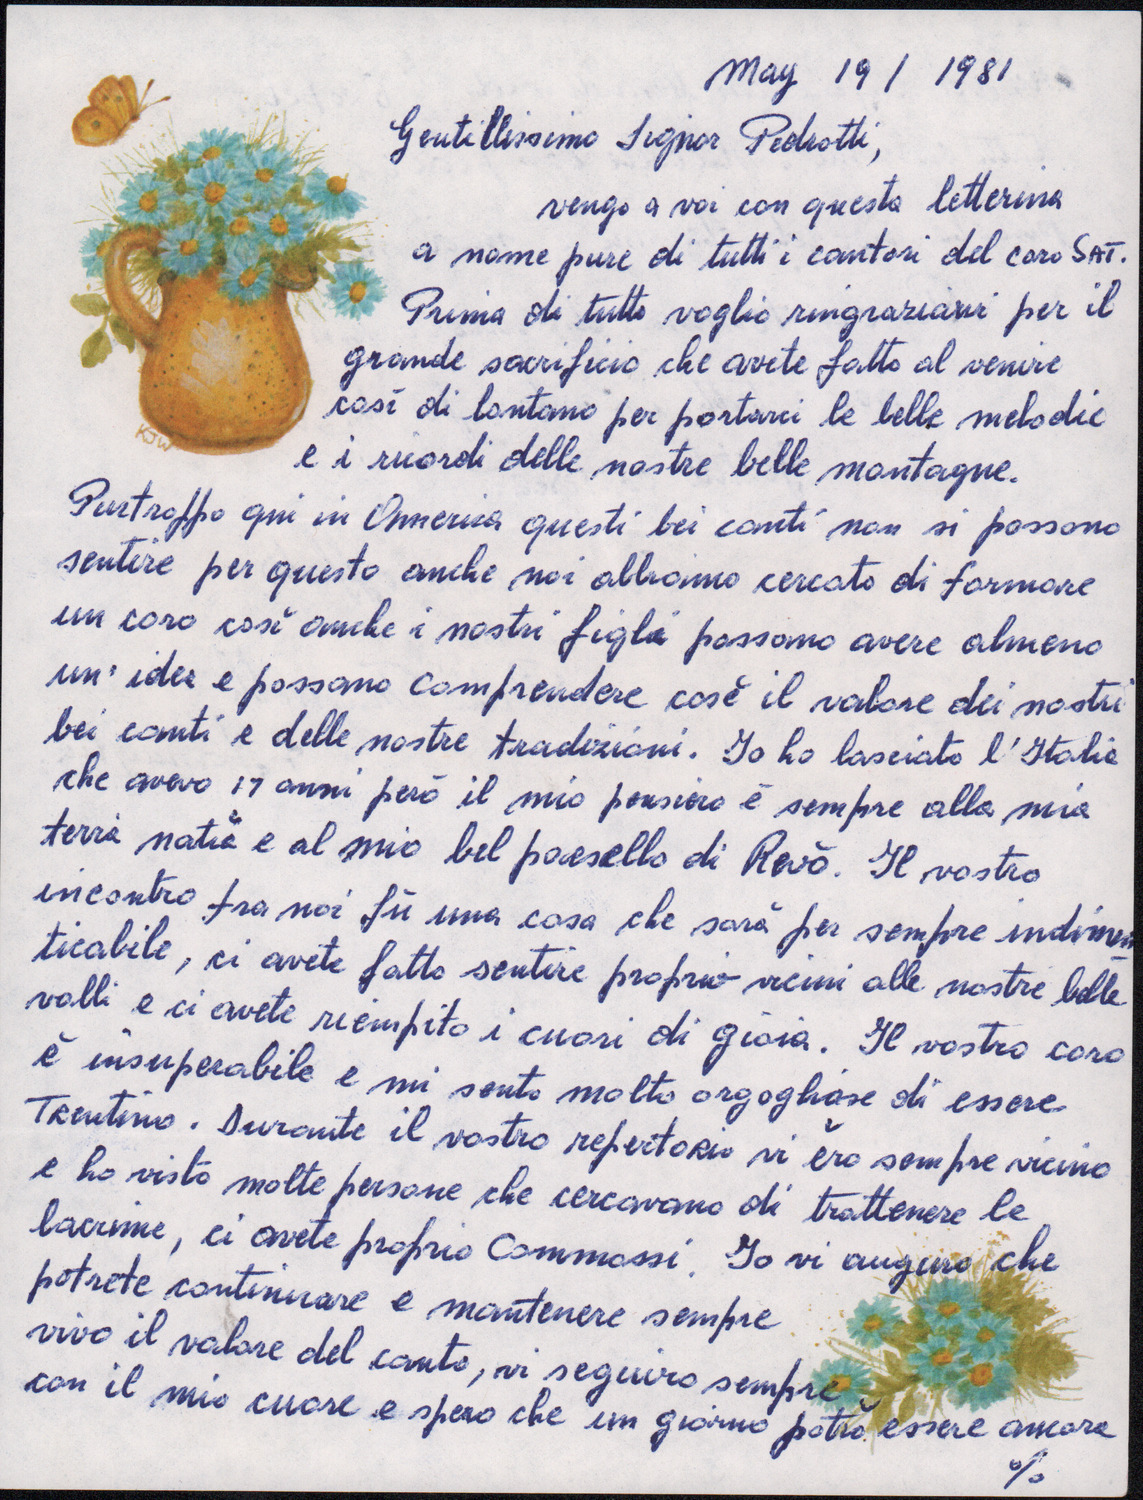 May 19 / 1981
Gentillissimo Signor Pedrotti,
vengo a voi con questa letterina
a nome pure di tutti i cantori del coro SAT.
Prima di tutto voglio ringraziarvi per il
grande sacrificio che avete fatto al venire
così di lontano per portarci le belle melodie
e i ricordi delle nostre belle montagne.
KJW
Purtroppo qui in America questi bei canti non si possono
sentire per questo anche noi abbiamo cercato di formare
un coro così anche i nostri figli possano avere almeno
un' idea e possano comprendere cosè il valore dei nostri
bei canti e delle nostre tradizioni. Io ho lasciato l'Italia
che avevo 17 anni però il mio pensiero è sempre alla mia
terra natià e al mio bel paesello di Revò. Il vostro
incontro fra noi fù una cosa che sarà per sempre indimen
ticabile, ci avete fatto sentire proprio vicini alle nostre belle
valli e ci avete riempito i cuori di gioia. Il vostro coro
è insuperabile e mi sento molto orgogliose di essere
Trentino. Durante il vostro repertorio vi ero sempre vicino
e ho visto molte persone che cercavano di trattenere le
lacrime, ci avete proprio Commossi. Io vi auguro che
potrete continuare e mantenere sempre
vivo il valore del canto, vi seguiro sempre
con il mio cuore e spero che un giorno potrò essere ancora
%